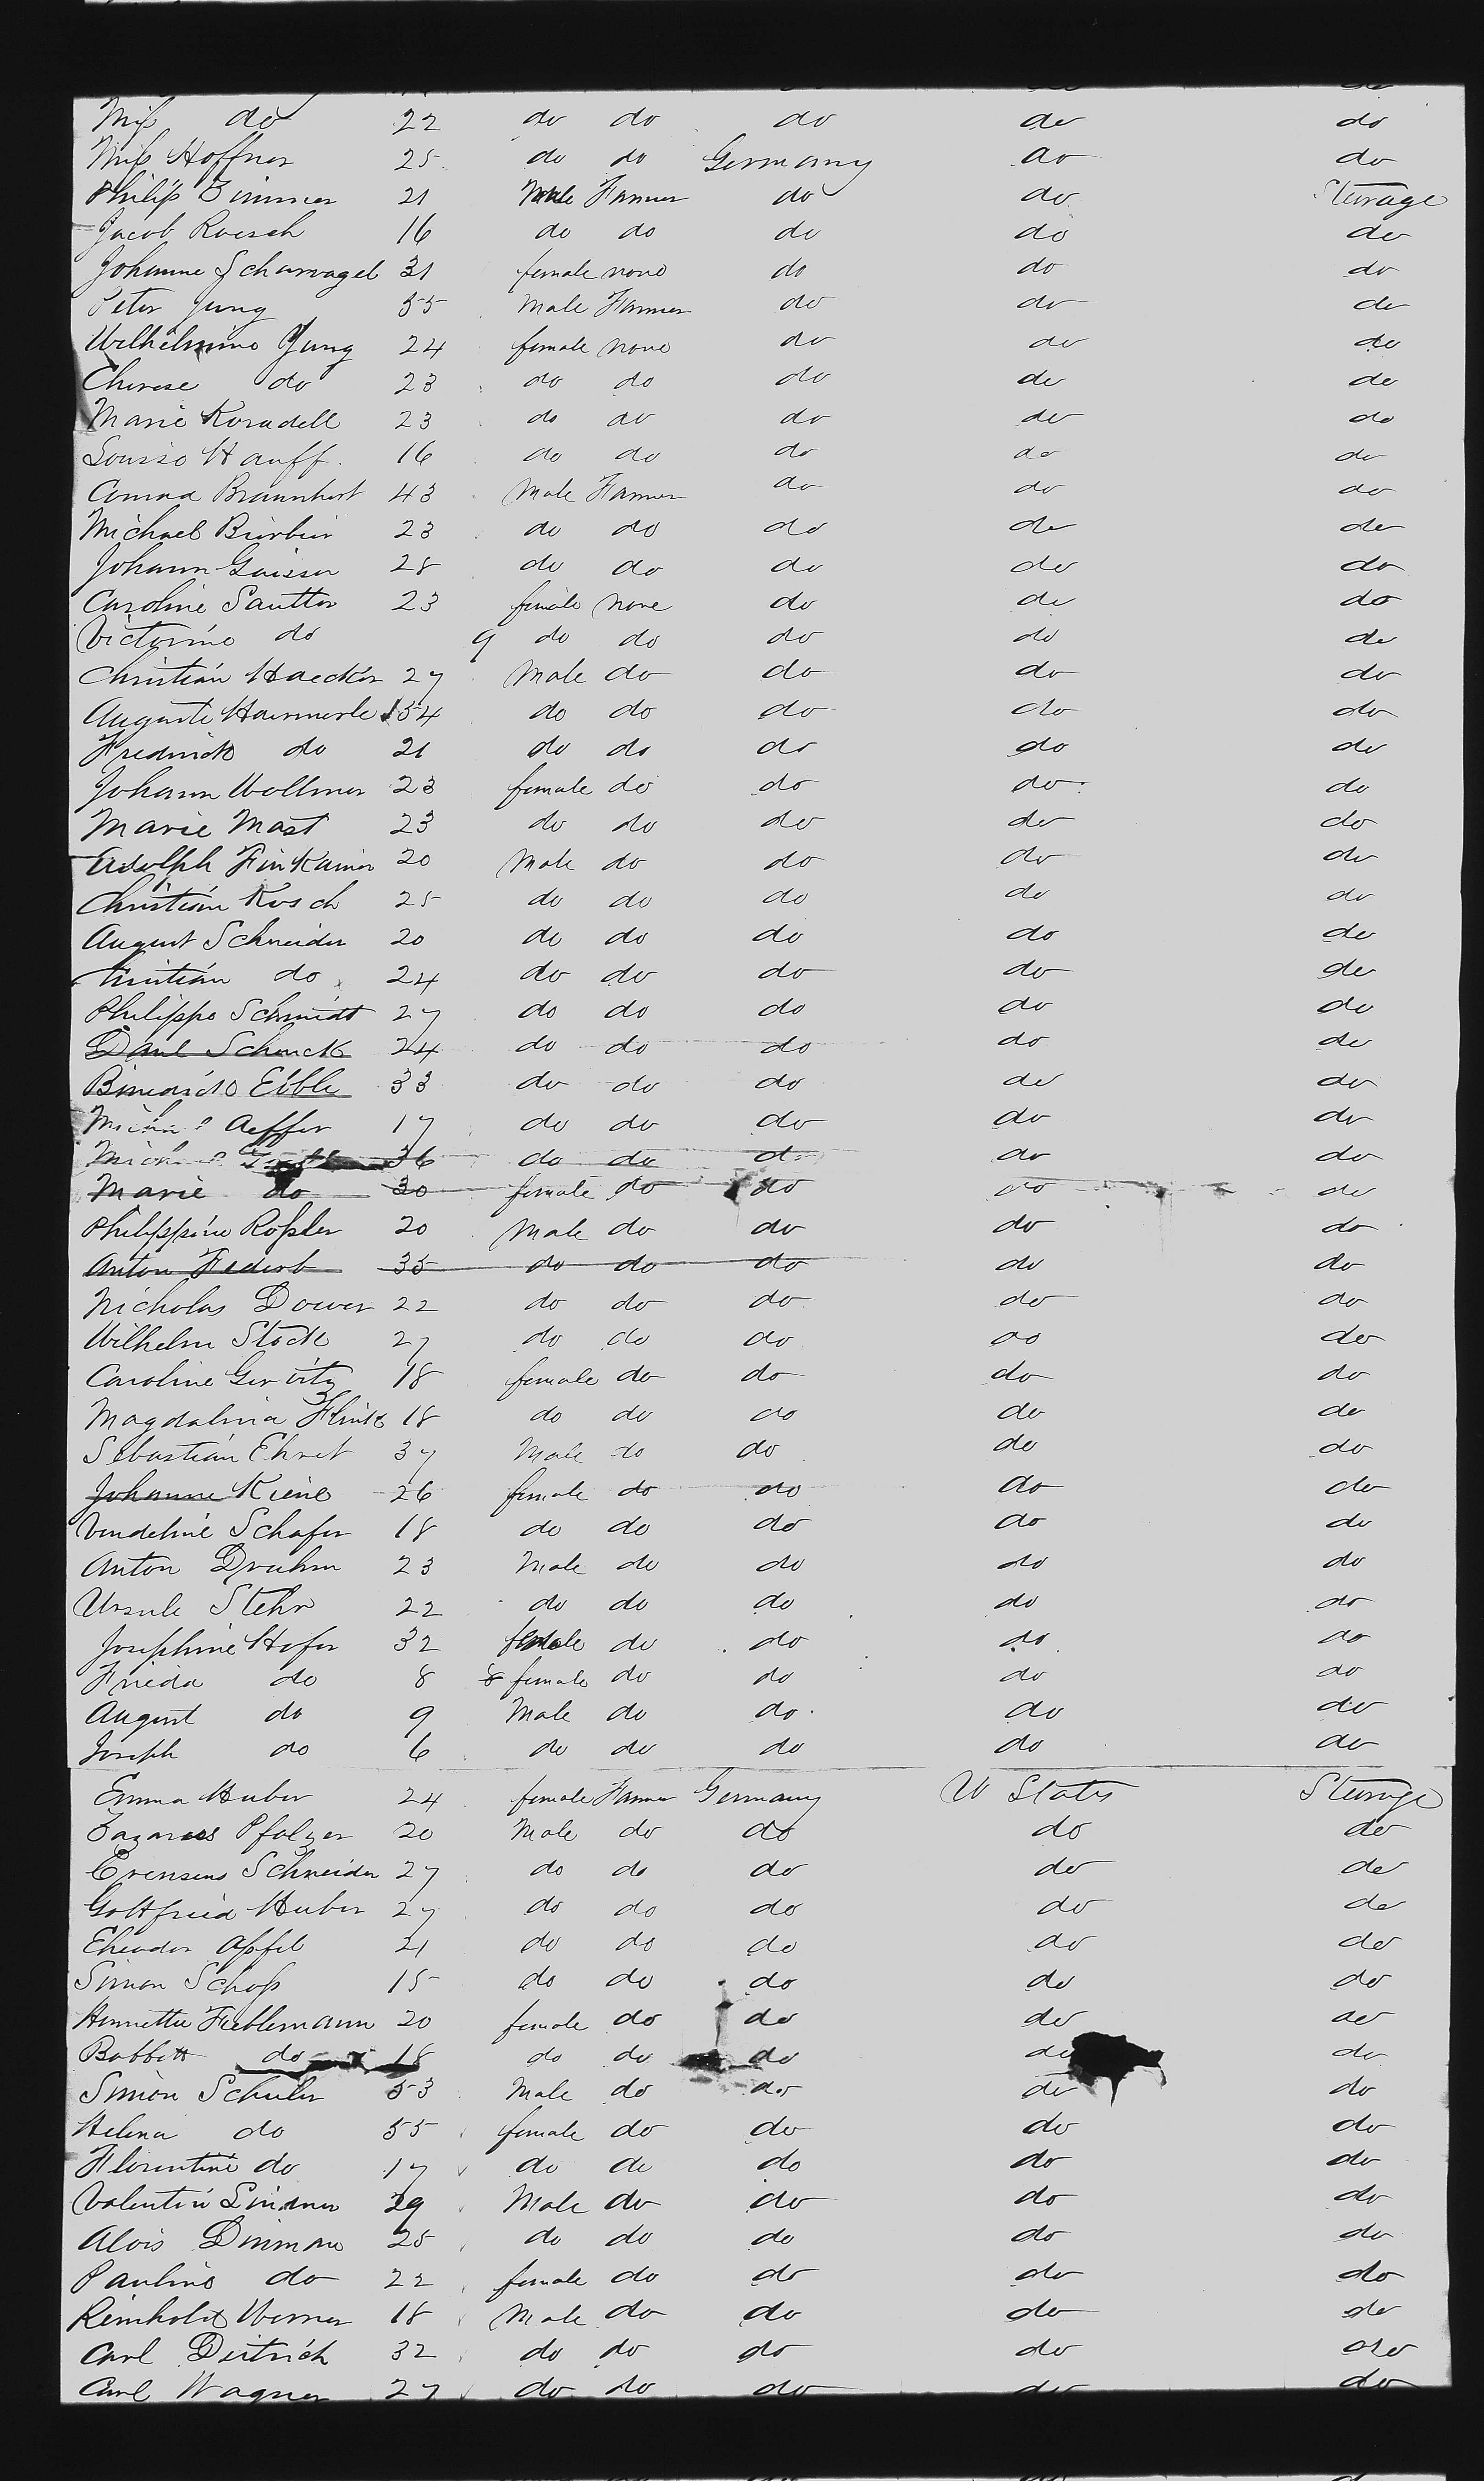 Miss do 22 do do do do do
Miss Hoffner 25 do do Germany do do
Philip Zimmer 21 Male Farmer do do Sterage
Jacob Roesch 16 do do do do do
Johanne Scharnagel 31 female none do do do
Peter Jung 55 Male Farmer do do do
Wilhelmine Jung 24 female none do do do
Therese do 23 do do do do do
Marie Koradell 23 do do do do do
Louise Hauff 16 do do do do do
Conrad Braunhert 43 Male Farmer do do do
Michael 23 do do do do do
Johann Gaisser 28 do do do do do
Caroline Sautter 23 female none do do do
Victorine do 9 do do do do do
Christian Haecker 27 Male do do do do
Auguste Haemmerle 54 do do do do do
Fredrick do 21 do do do do do
Johann Wollmer 23 female do do do do
Marie Mast 23 do do do do do
Adolph Finkainer 20 Male do do do do
Christian Kusch 25 do do do do do
August Schneider 20 do do do do do
Christian do 24 do do do do do
Philippe Schmidt 27 do do do do do
Daul Schenck 24 do do do do do
Binedicto Eible 33 do do do do do
Aeffer 17 do do do do do
36 do do do do do
Marie do 30 female do do do do
Philippine Roßler 20 Male do do do do
Anton Federb 35 do do do do do
Nicholas Dower 22 do do do do do
Wilhelm Stock 27 do do do do do
Caroline Gervitz 18 female do do do do
Magdalina Flink 18 do do do do do
Sebastian Ehret 37 Male do do do do
Johanne Kiene 26 female do do do do
Vendeline Schafer 18 do do do do do
Anton Druhm 23 Male do do do do
Ursule Stehr 22 do do do do do
Josephine Hofer 32 female do do do do
Frieda do 8 8 female do do do do
August do 9 Male do do do do
Joseph do 6 do do do do do
Emma Huber 24 female Farmer Germany U States Sterage
Lazarus Pfalzer 20 Male do do do do
Crensens Schneider 27 do do do do do
Gottfried Huber 27 do do do do do
Theodor Apfel 21 do do do do do
Simon Schoß 15 do do do do do
Henriette Fieblemann 20 female do do do do
Babbett do 18 do do do do do
Simon Schuler 53 Male do do do do
Helena do 55 female do do do do
Florentine do 17 do do do do do
Valentin Lindner 29 Male do do do do
Alois Dinman 25 do do do do do
Pauline do 22 female do do do do
Reinhold Werner 18 Male do do do do
Carl Dietrich 32 do do do do do
Carl Wagner 27 do do do do do